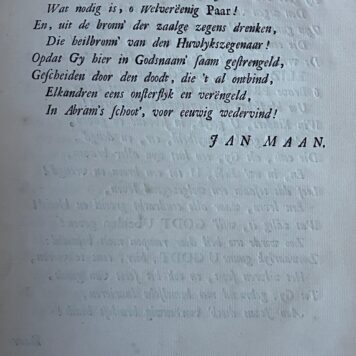 Wat nodig is, o Welverëenig Paar!
En, uit de bronn' der zaalge zegens drenken,
Die heilbronn' van den Huwlykszegenaar!
Opdat Gy hier in Godsnaam' saam gestrengeld,
Gescheiden door den doodt, die 't al ontbind,
Elkandren eens onsterflyk en verëngeld,
In Abram's schoot', voor eeuwig wedervind!
JAN MAAN.